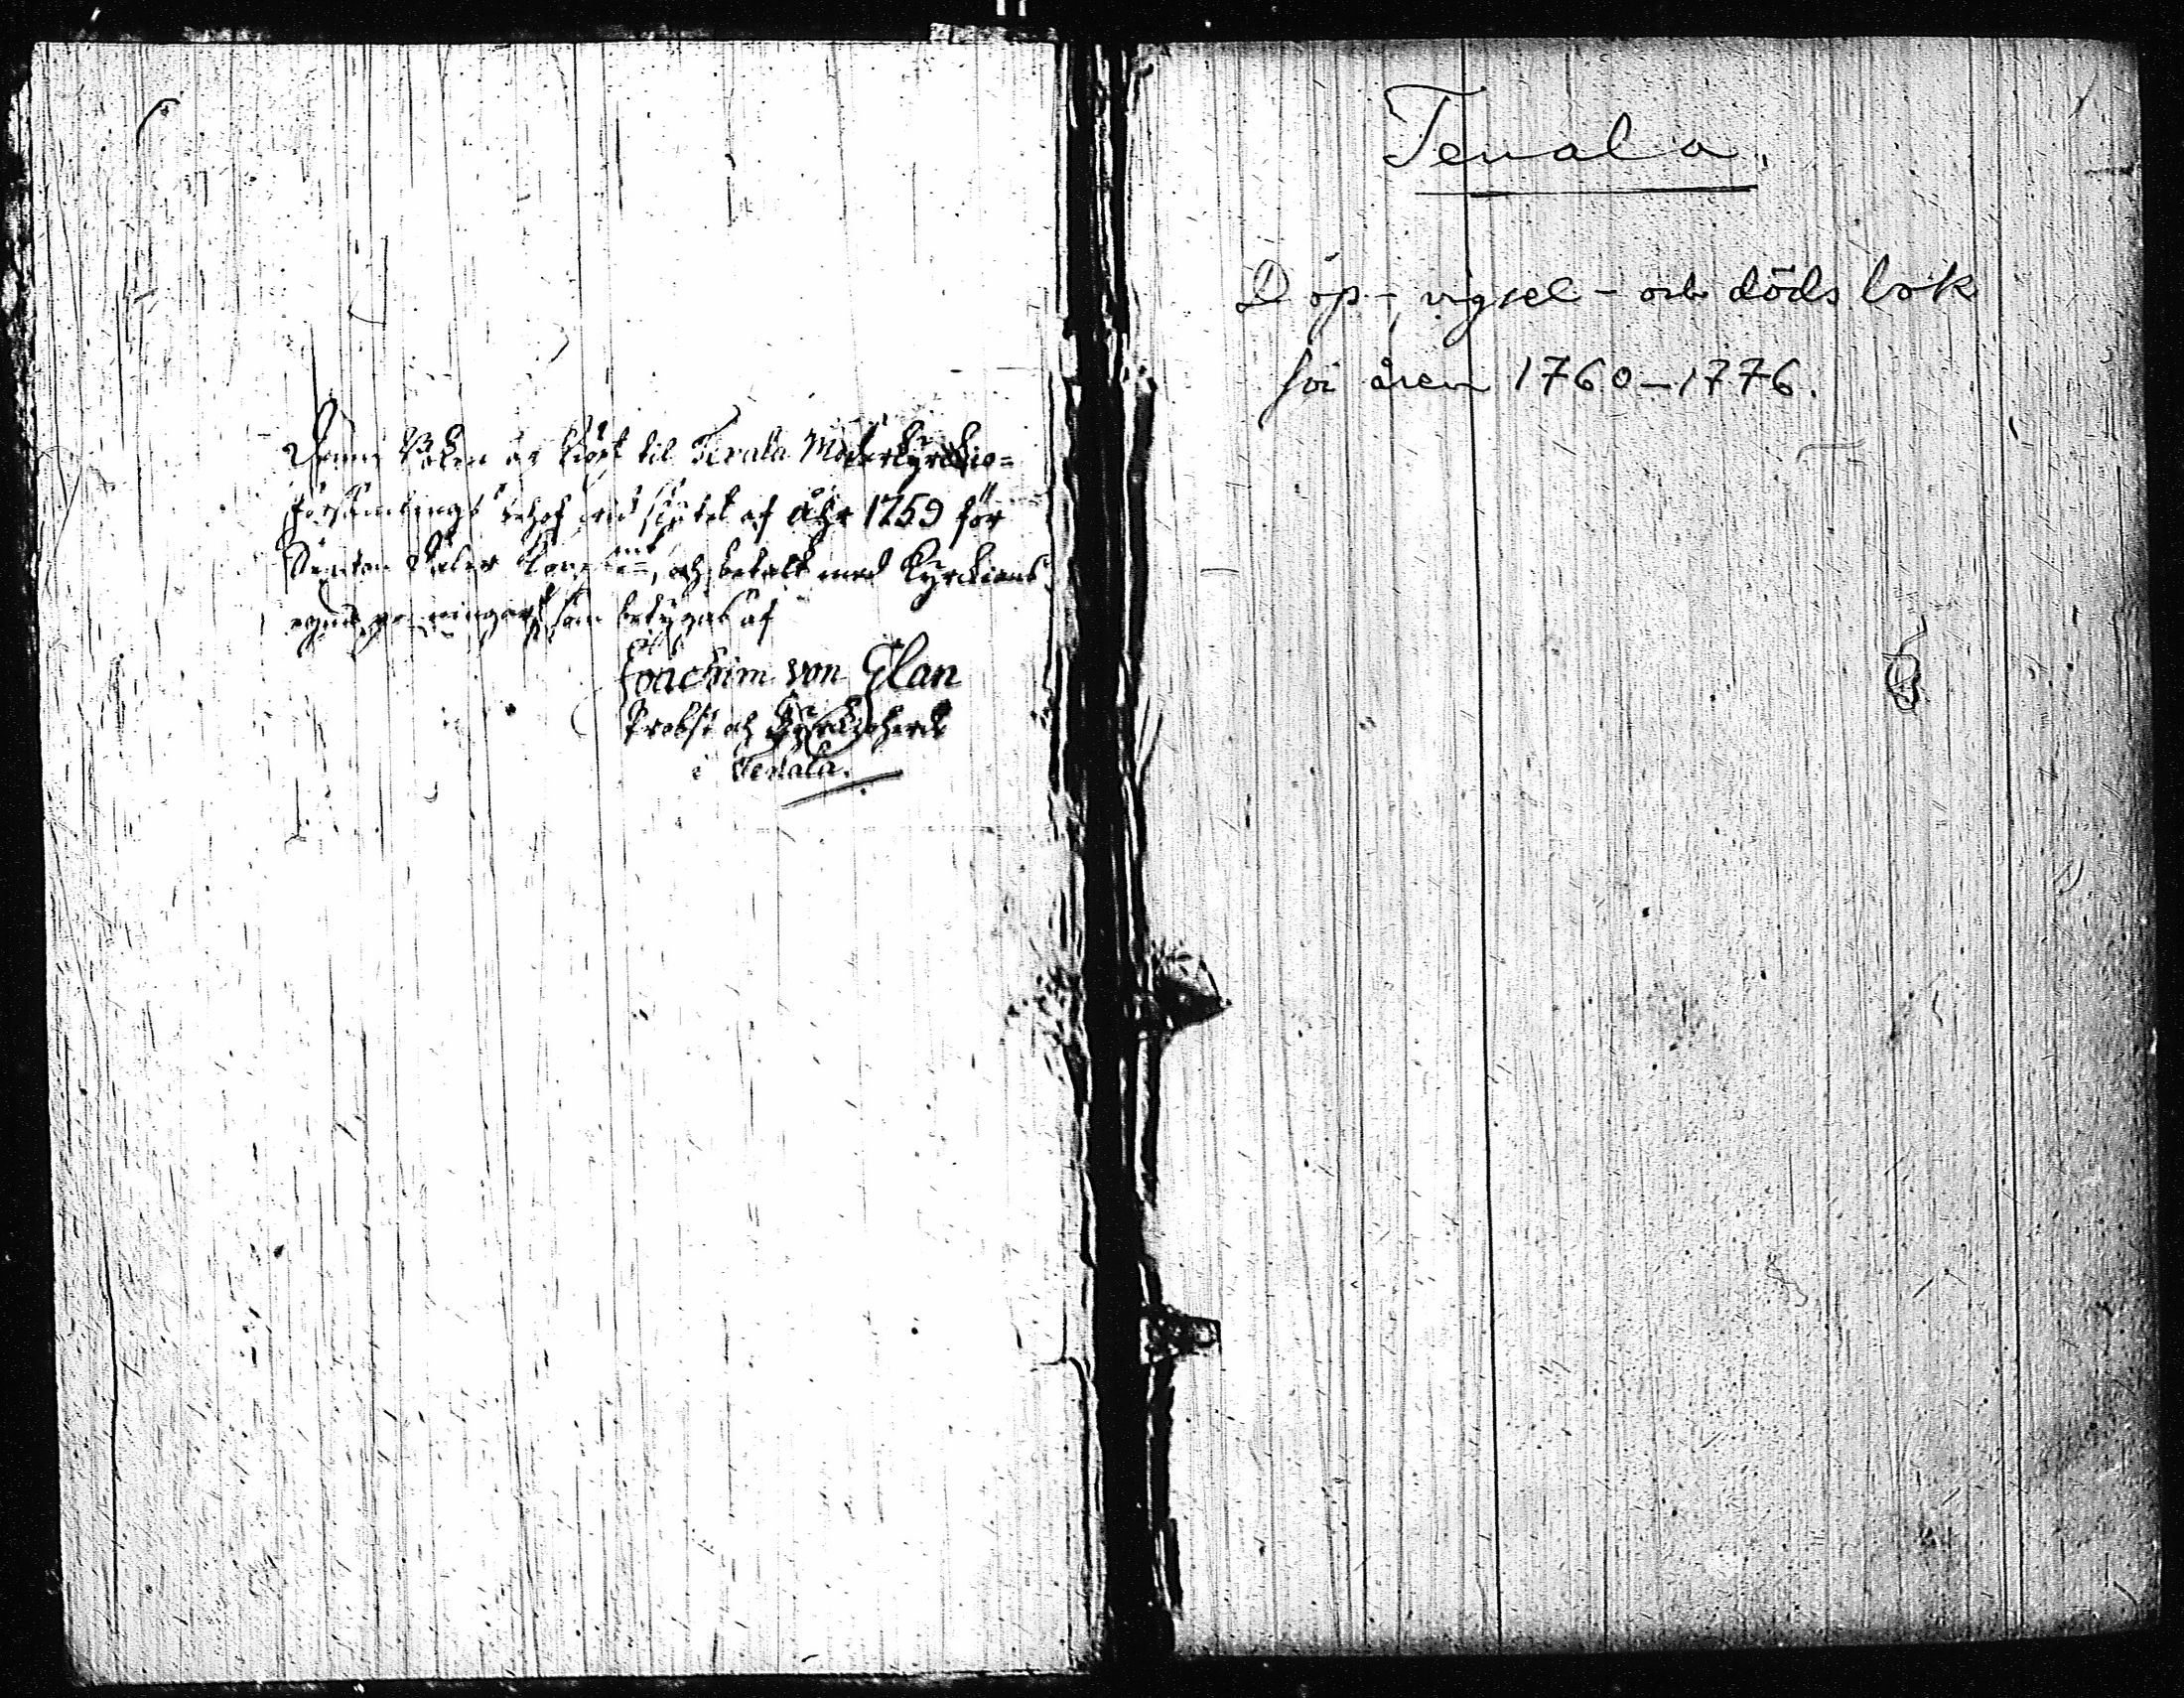 Denne Boken är kiöpt til Tenala Moderkyrckio=
församlings behof wid slutet af åhr 1759 för
Daler och betalt med Kyrckians
egna penningar, som betygas af
Joachim von Glan
Probst och Kyrckioherde
i Tenala.
Tenala.
Döp-, vigsel- och dödsbok
för åren 1760-1776.